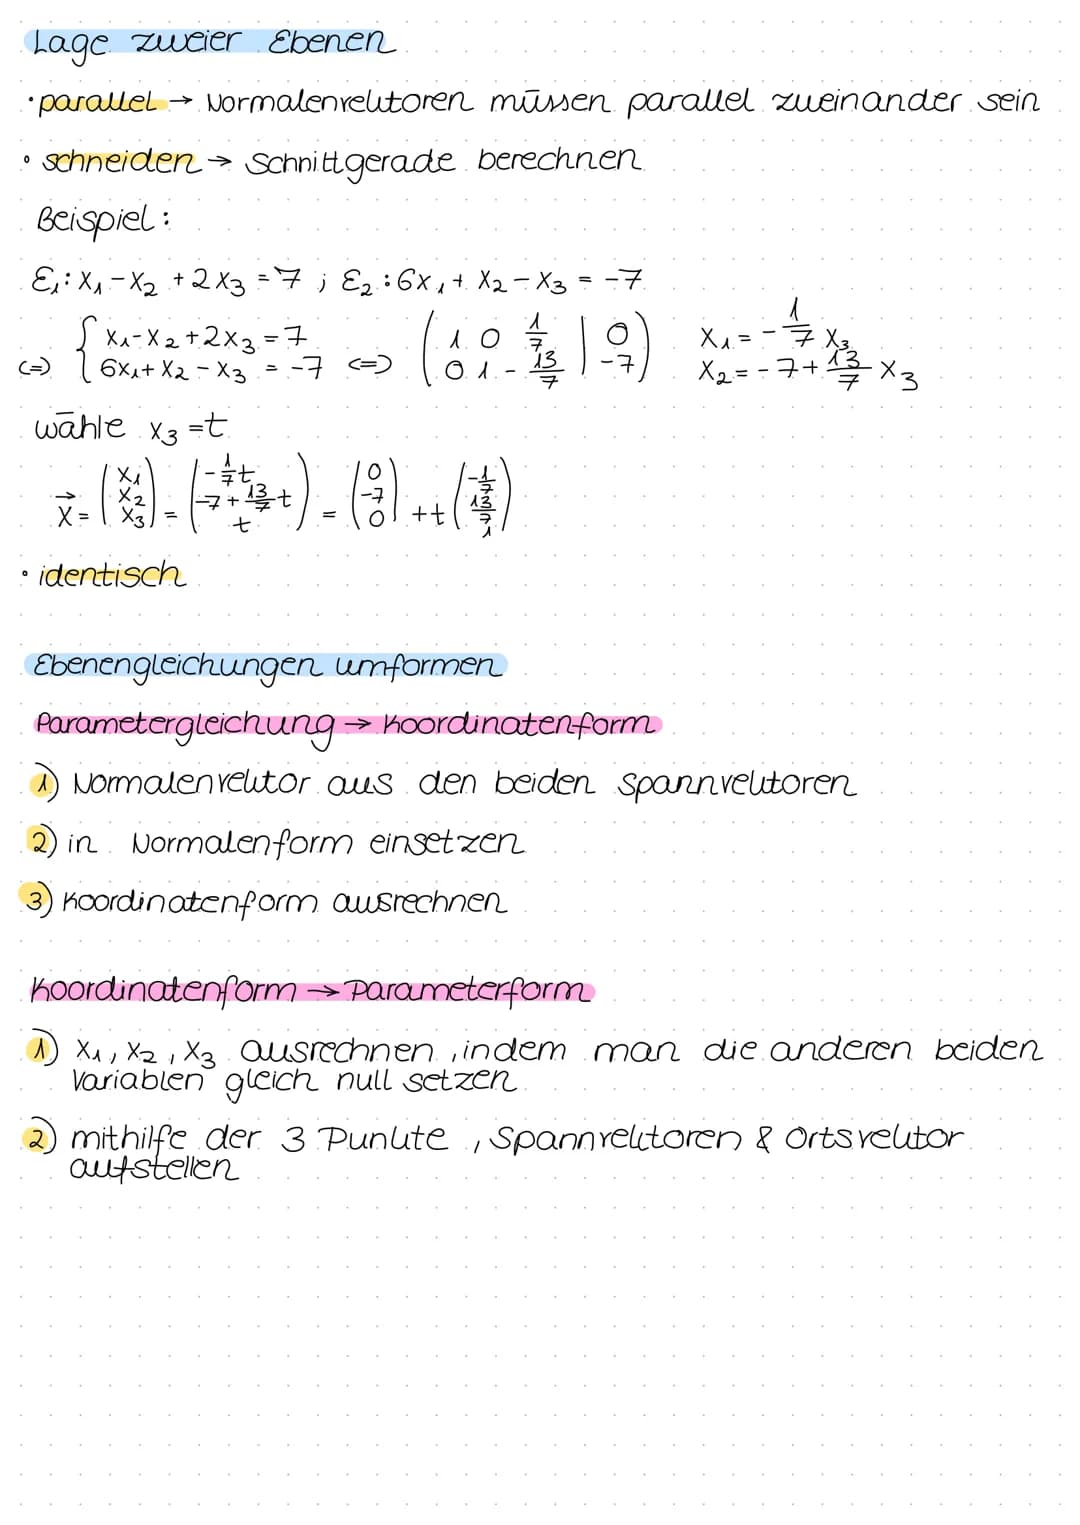 Lage zweier Ebenen
• parallel → Normalenvektoren müssen parallel zueinander sein
• schneiden → Schnittgerade berechnen
Beispiel:
ε₁: x₁ - x₂ + 2x₃ = 7 ; ε₂: 6x₁ + x₂ - x₃ = -7
⇔ { x₁ - x₂ + 2x₃ = 7 ; 6x₁ + x₂ - x₃ = -7 ⇔ ( 1 0 1/7 | 0 ; 0 1 -13/7 | -7 ) x₁ = -1/7 x₃ ; x₂ = -7 + 13/7 x₃
wähle x₃ = t
x⃗ = (x₁ x₂ x₃) = (-1/7 t ; -7 + 13/7 t ; t) = (0 ; -7 ; 0) + +t (-1/7 ; 13/7 ; 1)
• identisch
Ebenengleichungen umformen
Parametergleichung → Koordinatenform
1) Normalenvektor aus den beiden Spannvektoren
2) in Normalenform einsetzen
3) Koordinatenform ausrechnen
Koordinatenform → Parameterform
1) x₁, x₂, x₃ ausrechnen, indem man die anderen beiden
Variablen gleich null setzen
2) mithilfe der 3 Punkte, Spannvektoren & Ortsvektor
aufstellen